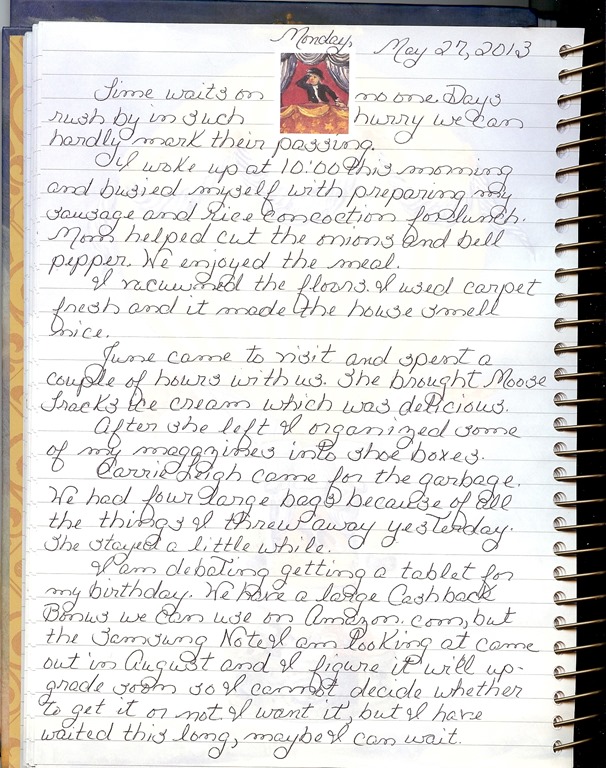 Monday, May 27, 2013
Time waits on no one. Days
rush by in such hurry we can
hardly mark their passing.
I woke up at 10:00 this morning
and busied myself with preparing my
sausage and rice concoction for lunch.
Mom helped cut the onions and bell
pepper. We enjoyed the meal.
I vacuumed the floors. I used carpet
fresh and it made the house smell
nice.
June came to visit and spent a
couple of hours with us. She brought Moose
Tracks ice cream which was delicious.
After she left I organized some
of my magazines into shoe boxes.
Carrie Leigh came for the garbage.
We had four large bags because of all
the things I threw away yesterday.
She stayed a little while.
I am debating getting a tablet for
my birthday. We have a large Cashback
Bonus we can use on Amazon.com, but
the Samsung Note I am looking at came
out in August and I figure it will up-
grade soon so I cannot decide whether
to get it or not. I want it, but I have
waited this long, maybe I can wait.